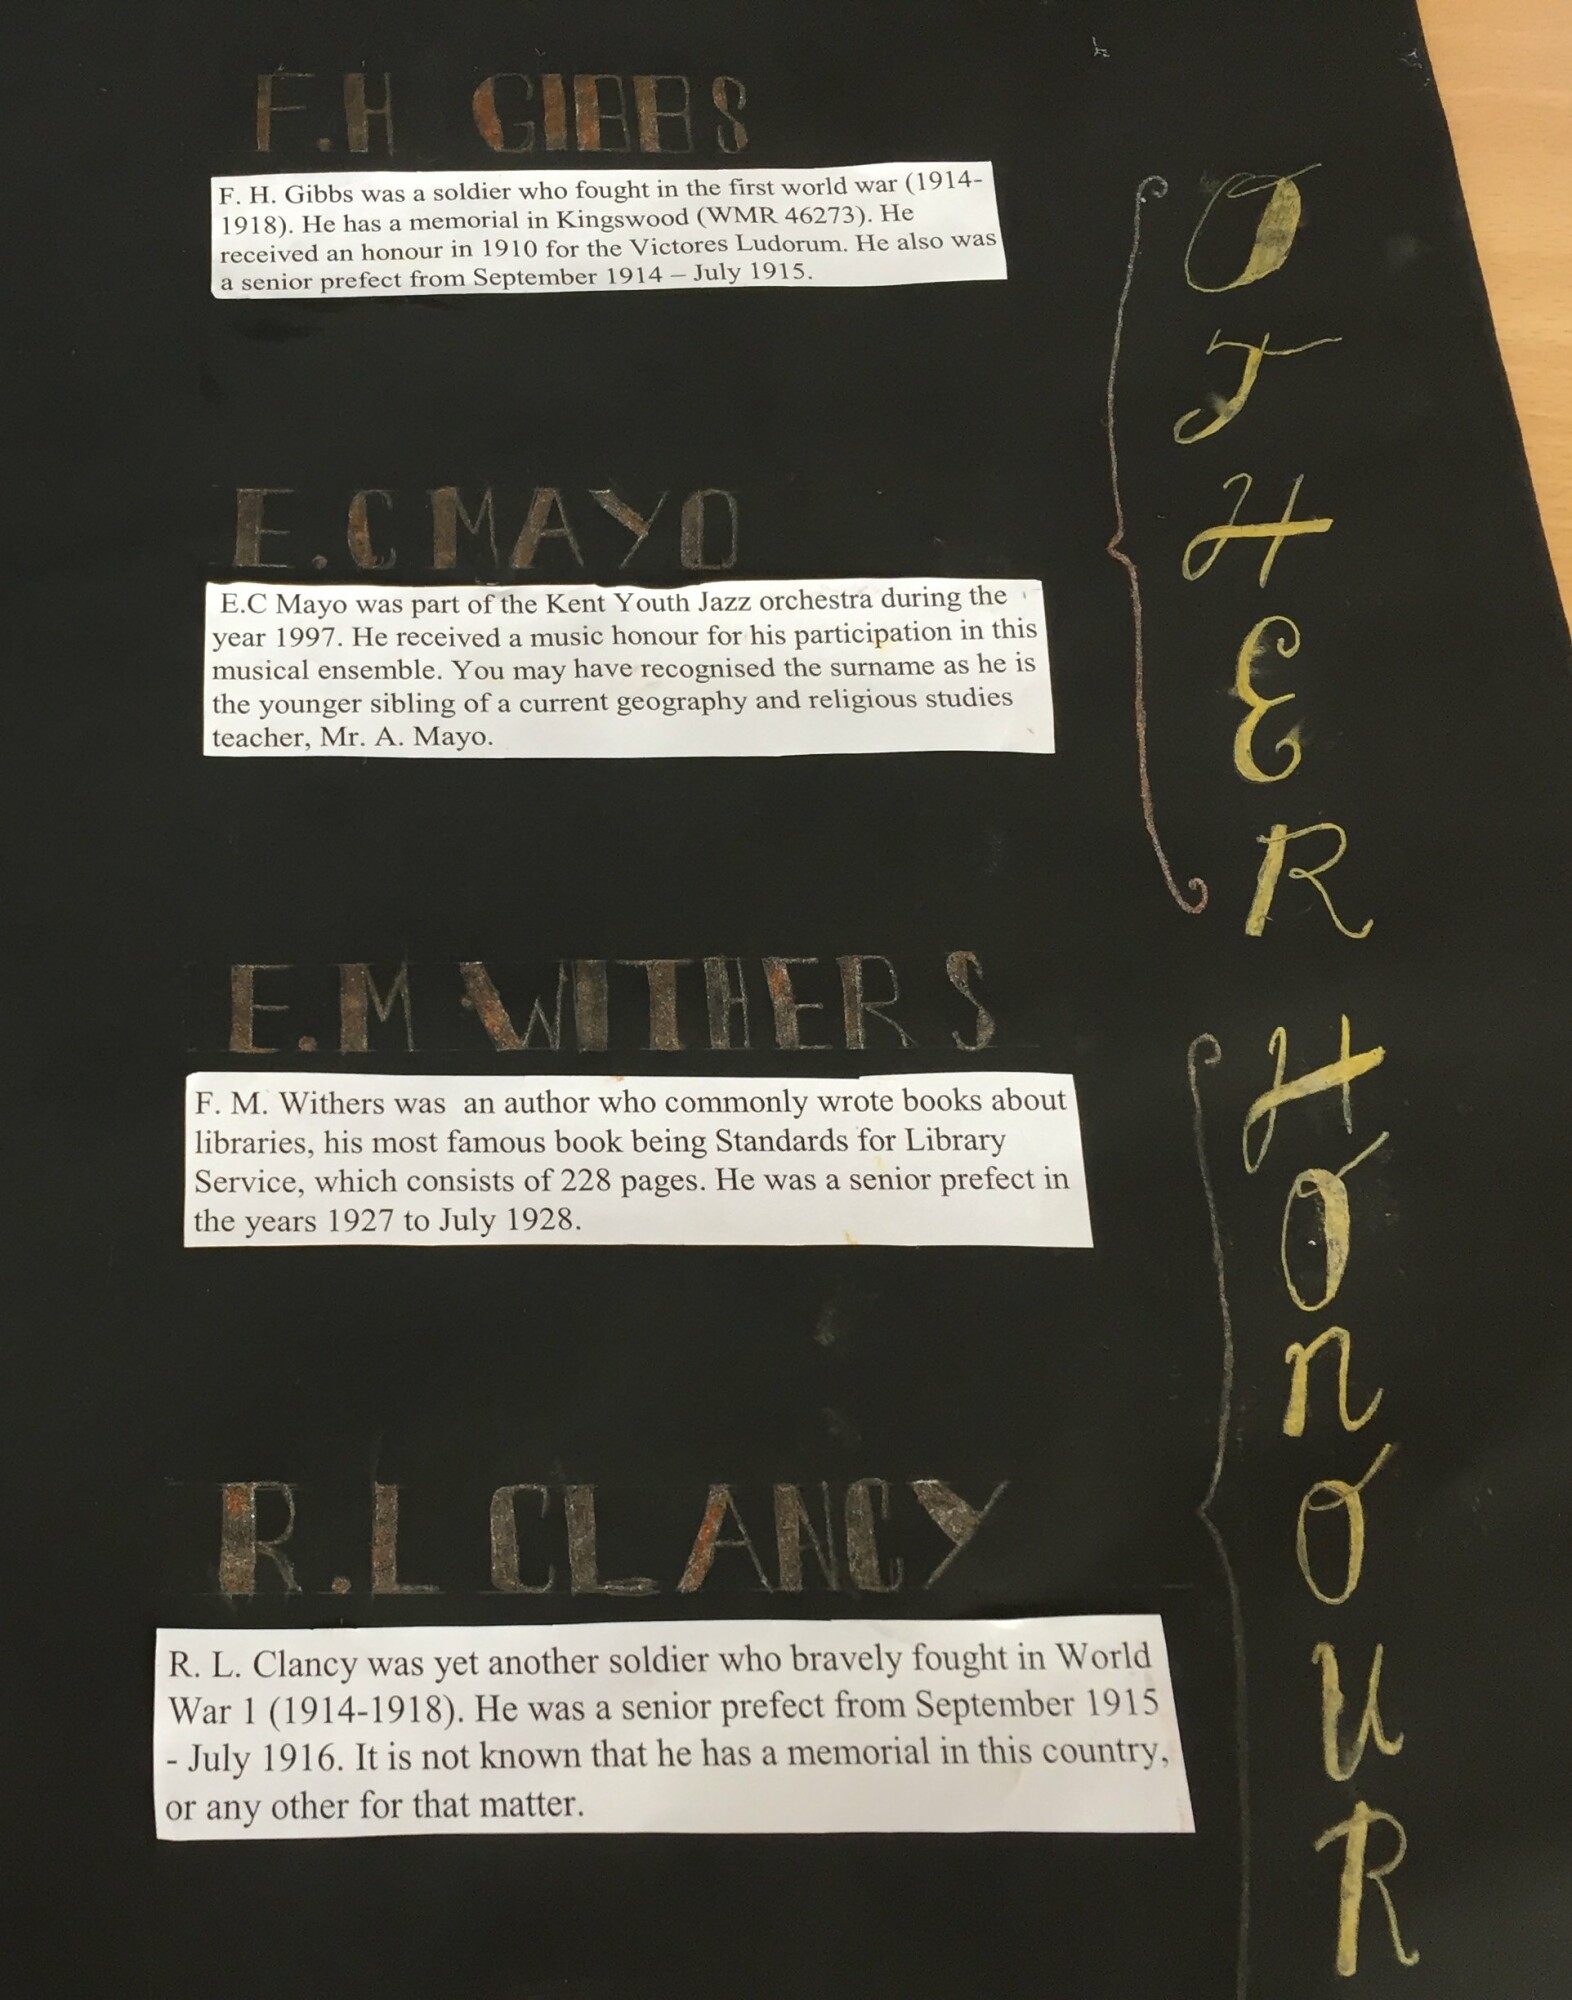 F.H GIBBS
F. H. Gibbs was a soldier who fought in the first world war (1914-
1918). He has a memorial in Kingswood (WMR 46273). He
received an honour in 1910 for the Victores Ludorum. He also was
a senior prefect from September 1914 – July 1915.
E.C MAYO
E.C Mayo was part of the Kent Youth Jazz orchestra during the
year 1997. He received a music honour for his participation in this
musical ensemble. You may have recognised the surname as he is
the younger sibling of a current geography and religious studies
teacher, Mr. A. Mayo.
E.M WITHERS
F. M. Withers was an author who commonly wrote books about
libraries, his most famous book being Standards for Library
Service, which consists of 228 pages. He was a senior prefect in
the years 1927 to July 1928.
R.L CLANCY
R. L. Clancy was yet another soldier who bravely fought in World
War 1 (1914-1918). He was a senior prefect from September 1915
- July 1916. It is not known that he has a memorial in this country,
or any other for that matter.
OTHER
HOnOUR